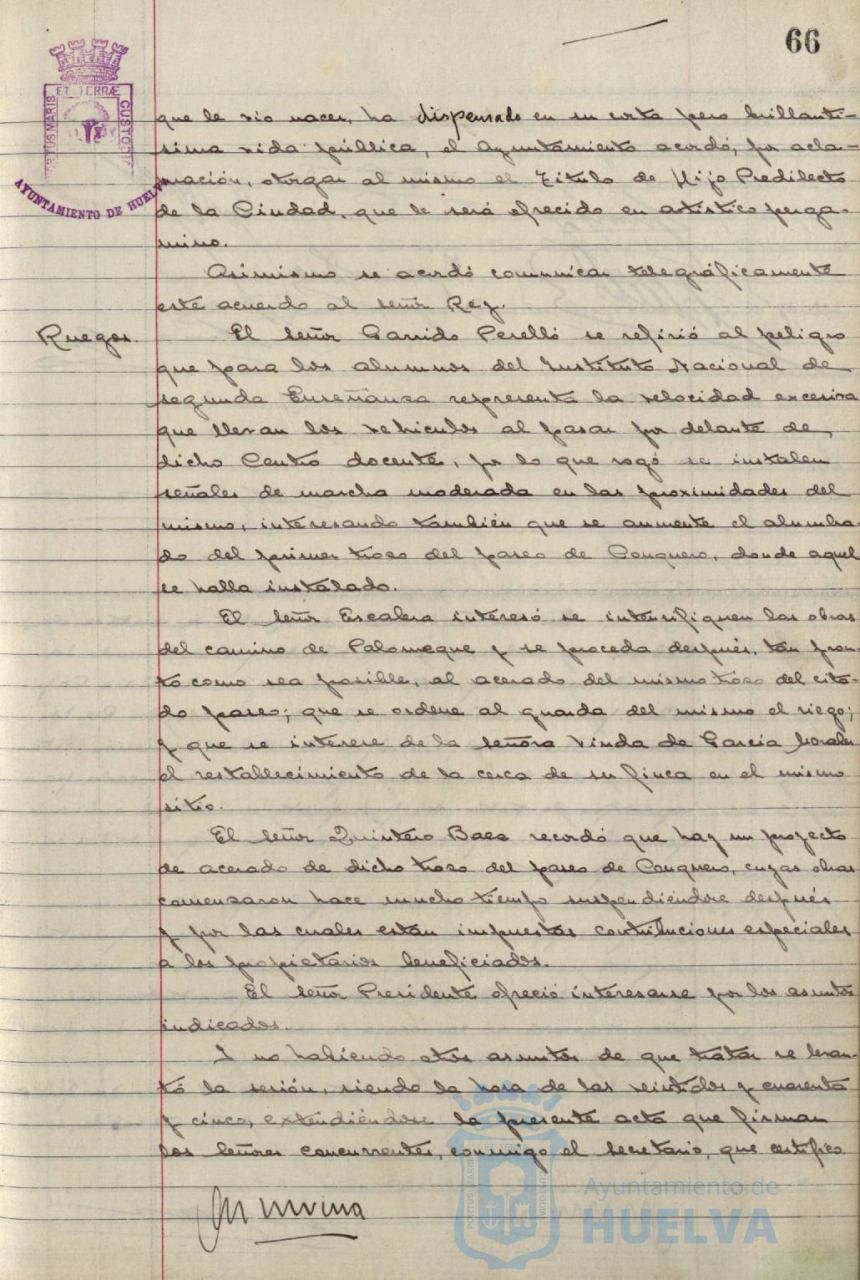 66
ET TERRÆ
PORTUS MARIS
CUSTODIA
AYUNTAMIENTO DE HUELVA
que le vio nacer, ha dispensado en su corta pero brillanti-
sima vida pública, el Ayuntamiento acordó, por acla-
mación, otorgar al mismo el Título de Hijo Predilecto
de la Ciudad, que le será ofrecido en artístico perga-
mino.
Asimismo se acordó comunicar telegráficamente
este acuerdo al señor Rey.
Ruegos.
El señor Garrido Perelló se refirió al peligro
que para los alumnos del Instituto Nacional de
segunda Enseñanza representa la velocidad excesiva
que llevan los vehiculos al pasar por delante de
dicho Centro docente, por lo que rogó se instalen
señales de marcha moderada en las proximidades del
mismo, interesando también que se aumente el alumbra-
do del primer trozo del paseo de Conquero, donde aquel
se halla instalado.
El señor Escalera interesó se intensifiquen las obras
del camino de Palomeque y se proceda después, tan pron-
to como sea posible, al acerado del mismo trozo del cita-
do paseo; que se ordene al guarda del mismo el riego;
y que se interese de la señora Viuda de García Morales
el restablecimiento de la cerca de su finca en el mismo
sitio.
El señor Quintero Baez recordó que hay un proyecto
de acerado de dicho trozo del paseo de Conquero, cuyas obras
comenzaron hace mucho tiempo suspendiéndose después
y por las cuales están impuestas contribuciones especiales
a los propietarios beneficiados.
El señor Presidente ofreció interesarse por los asuntos
indicados.
Y no habiendo otros asuntos de que tratar se levan-
tó la sesión, siendo la hora de las veintidos y cuarenta
y cinco, extendiéndose la presente acta que firman
los señores concurrentes, conmigo el secretario, que certifico.
Ayuntamiento de
HUELVA